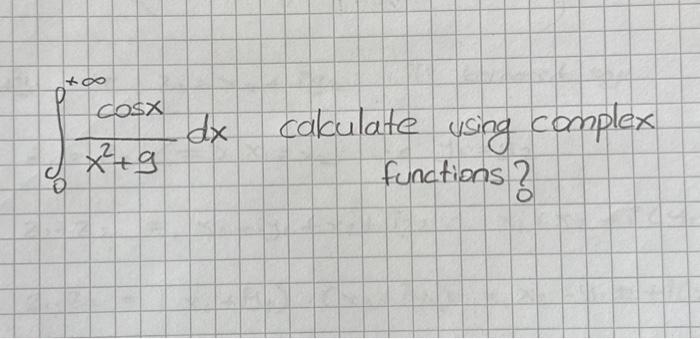 ∫₀^{+∞} cosx / (x² + 9) dx calculate using complex
functions?